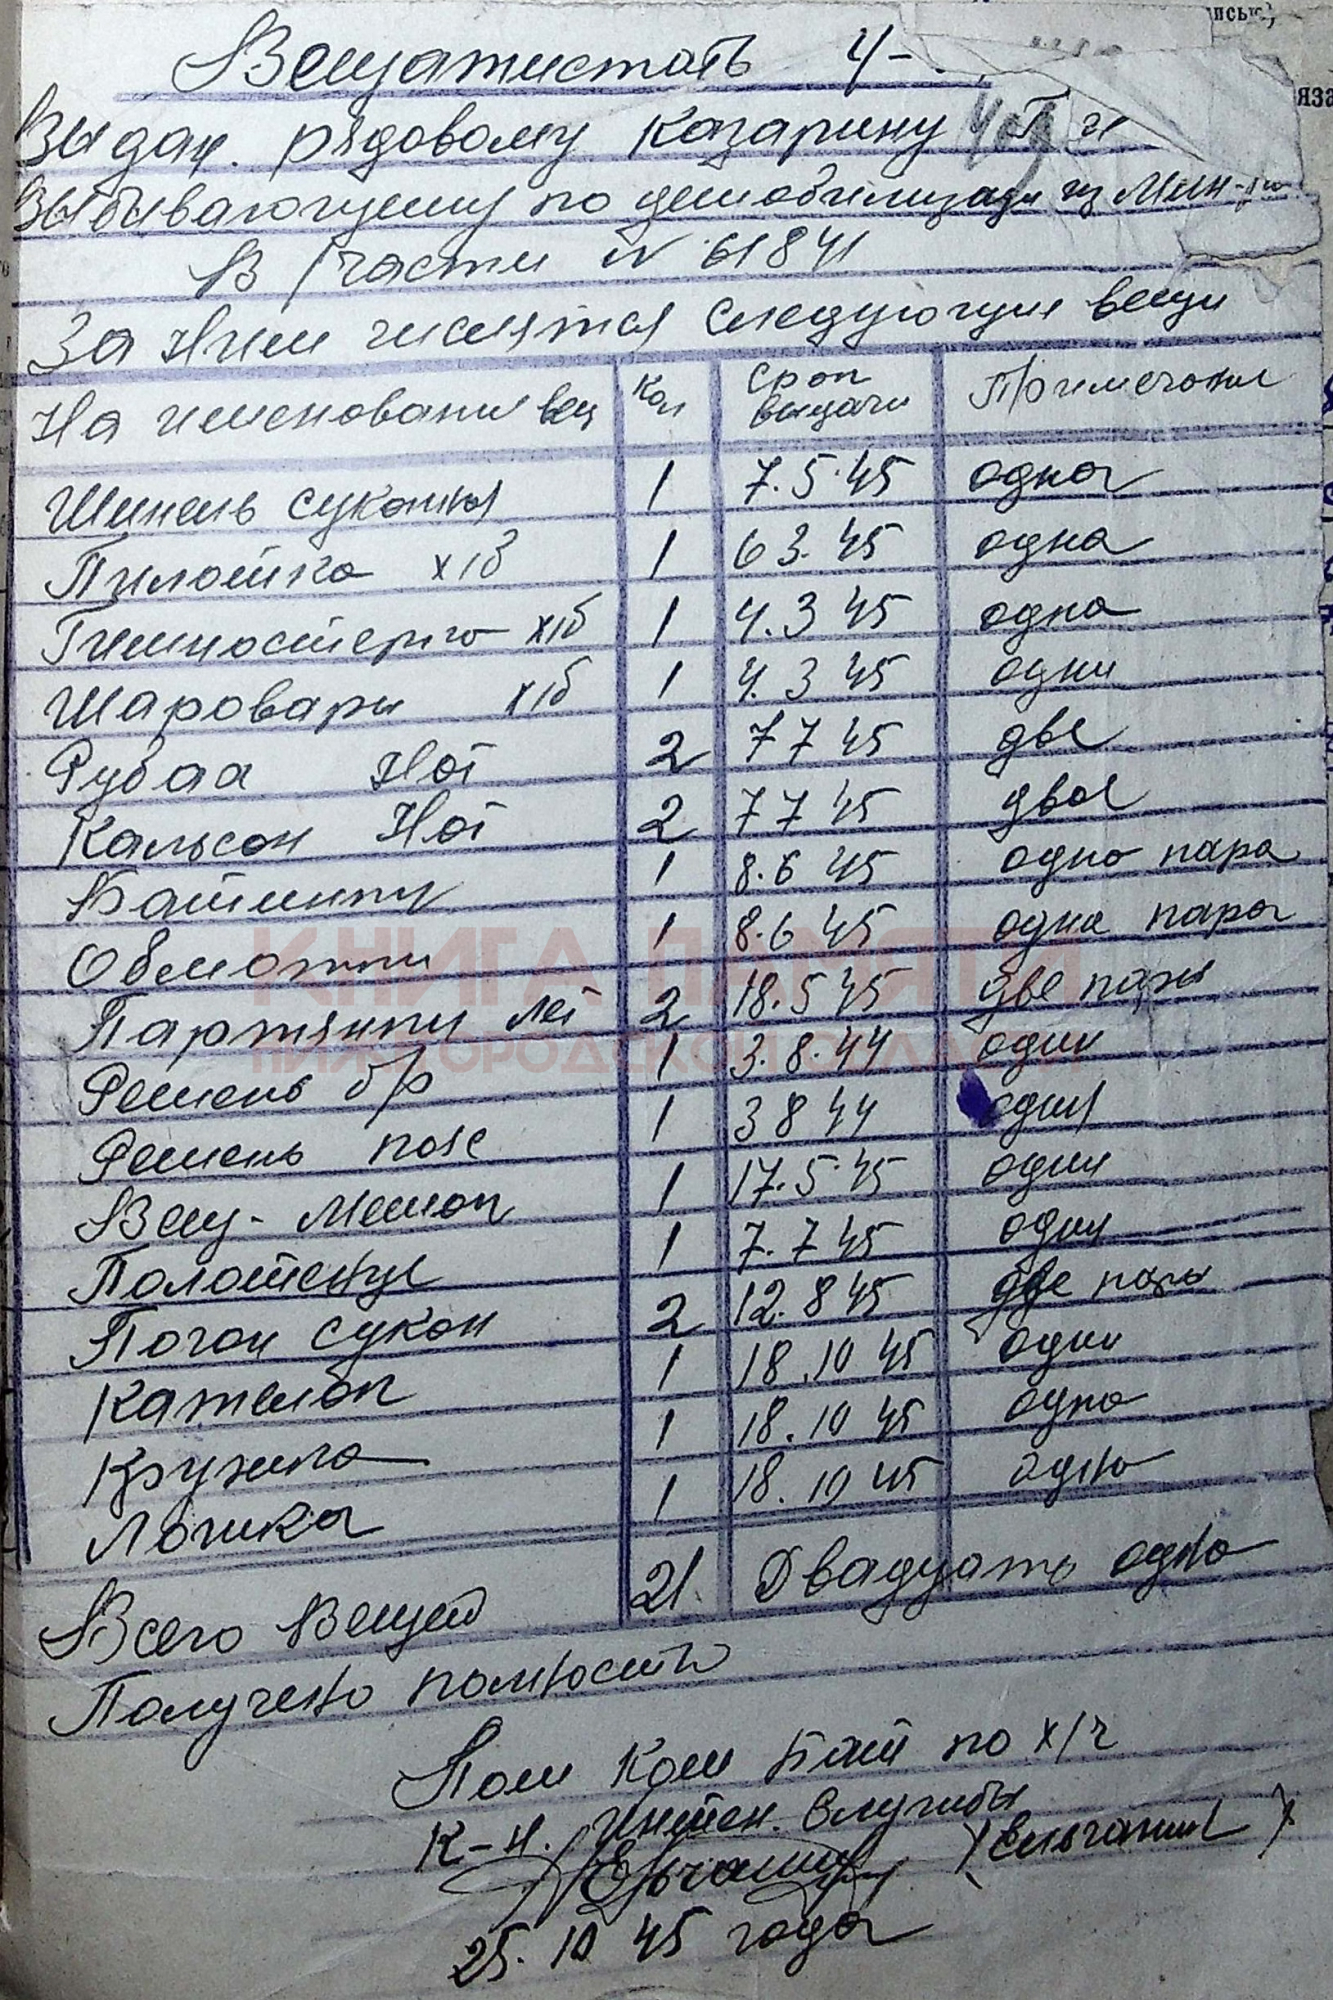 Вещатистатъ Ч-
Выдан. рядовому Казарину Г И
Выбывающему по демобилизаци из
В/части N 61841
За Ним числятся следующии вещи
На именовании вещ Кол Срок выдачи Примечании
Шинель сукона 1 7.5.45 одна
Пилотка х/б 1 6 3. 45 одна
Гимностерка х/б 1 4.3 45 одна
Шаровары х/б 1 4. 3 45 одни
Рубаа Нат 2 7 7 45 две
Кальсон Нат 2 7 7 45 двое
Батинки 1 8.6 45 одна пара
Обмотки 1 8.6 45 одна пара
Партянки лет 2 18.5 45 две пары
Ремень б/р 1 3.8.44 один
Ремень пояс 1 3 8 44 один
Вещ-Мешок 1 17.5 45 один
Полотенце 1 7.7 45 один
Погон сукон 2 12.8 45 две пары
Кателок 1 18.10 45 один
Кружка 1 18.10 45 одна
Ложка 1 18.10 45 одна
Всего Вещей 21. Двадцать одна
Получено полностю
Пом Ком Бат по х/ч
К-н. интен. Службы
(Ельчанин)
25. 10 45 года
КНИГА ПАМЯТИ
НИЖЕГОРОДСКОЙ ОБЛАСТИ